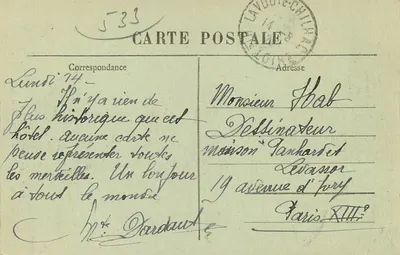 533
LAVOUTE-CHILHAC
CARTE POSTALE
Correspondance
Adresse
Lundi 14 -
Il n'y a rien de
plus historique que cet
hôtel. aucune carte ne
peuse représenter toutes
les merveilles. Un bonjour
à tout le monde
Dardant
Monsieur Hab
Dessinateur
maison Panhard et
Levassor
19 avenue d'Ivry
Paris XIIIe